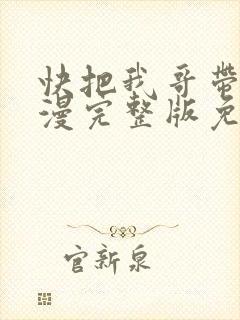 快把我哥带
漫完整版免
官新泉